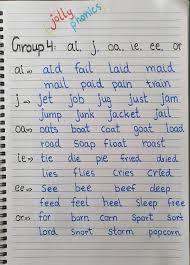 jolly
phonics
Group 4: ai, j, oa, ie, ee, or
ai → aid fail laid maid
mail paid pain train
j → jet job jug just jam
jump junk jacket jail
oa → oats boat coat goat load
road soap float roast
ie → tie die pie fried dried
lies flies cries cried
ee → see bee beef deep
feed feel heel sleep free
or → for born corn sport sort
lord snort storm popcorn